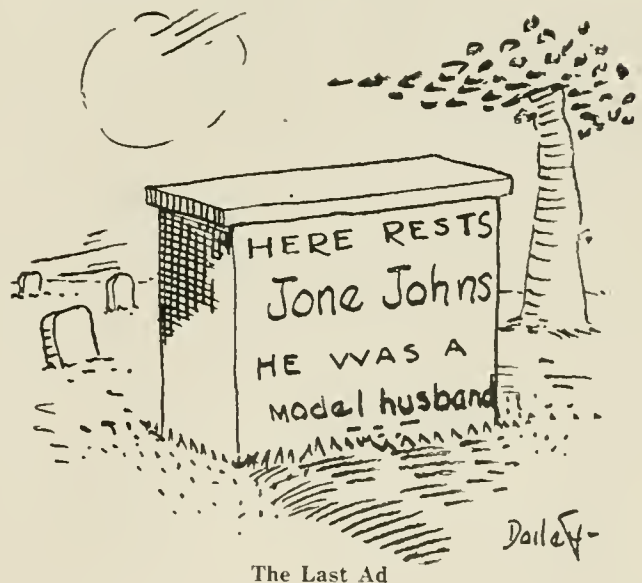 HERE RESTS
Jone Johns
HE WAS A
Model husband
Dailey-
The Last Ad